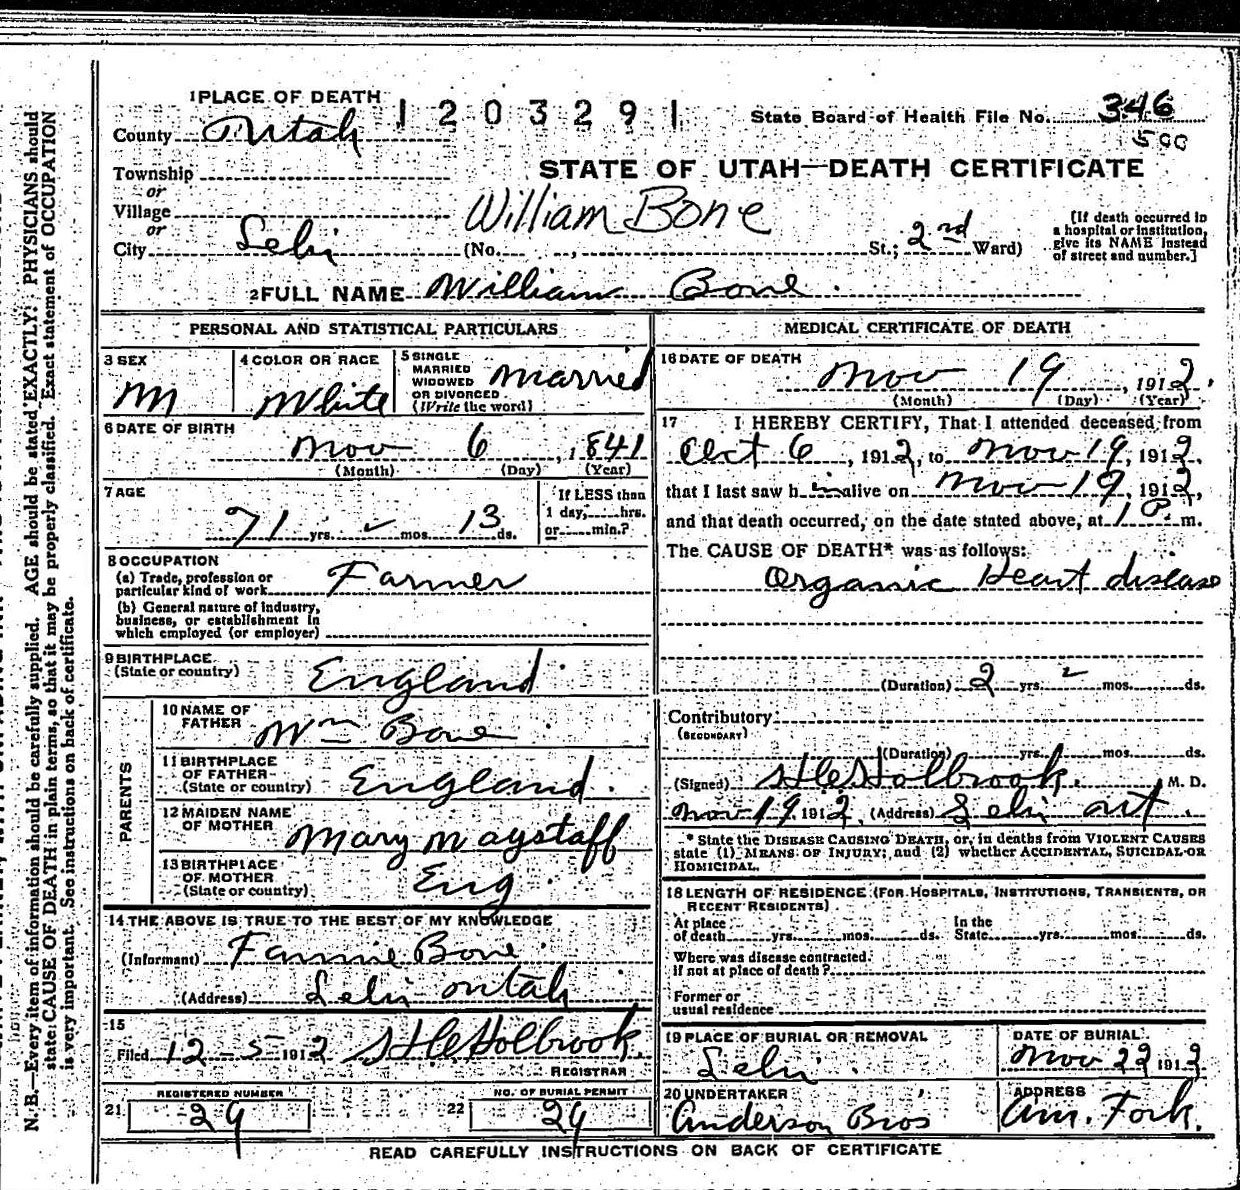 1 PLACE OF DEATH
1203291
State Board of Health File No. 346
500
County Utah
STATE OF UTAH—DEATH CERTIFICATE
Township
or
Village
William Bone
or
City Lehi (No. , St.; 2nd Ward)
[If death occurred in
a hospital or institution,
give its NAME instead
of street and number.]
2 FULL NAME William Bone
PERSONAL AND STATISTICAL PARTICULARS
3 SEX
M
4 COLOR OR RACE
White
5 SINGLE
MARRIED
WIDOWED
OR DIVORCED
(Write the word)
Married
6 DATE OF BIRTH
Nov 6, 1841
(Month) (Day) (Year)
7 AGE
71 yrs. mos. 13 ds.
If LESS than
1 day, hrs.
or min.?
8 OCCUPATION
(a) Trade, profession or
particular kind of work Farmer
(b) General nature of industry,
business, or establishment in
which employed (or employer)
9 BIRTHPLACE
(State or country) England
PARENTS
10 NAME OF
FATHER Wm Bone
11 BIRTHPLACE
OF FATHER
(State or country) England.
12 MAIDEN NAME
OF MOTHER Mary Maystaff
13 BIRTHPLACE
OF MOTHER
(State or country) Eng
14 THE ABOVE IS TRUE TO THE BEST OF MY KNOWLEDGE
(Informant) Fannie Bone
(Address) Lehi Utah
15
Filed 12-5 1912 Holbrook.
REGISTRAR
21 REGISTERED NUMBER
29
22 NO. OF BURIAL PERMIT
29
MEDICAL CERTIFICATE OF DEATH
16 DATE OF DEATH
Nov 19, 1912.
(Month) (Day) (Year)
17 I HEREBY CERTIFY, That I attended deceased from
Oct 6, 1912, to Nov 19, 1912,
that I last saw him alive on Nov 19, 1912,
and that death occurred, on the date stated above, at 1 P. m.
The CAUSE OF DEATH* was as follows:
Organic Heart disease
(Duration) 2 yrs. mos. ds.
Contributory
(SECONDARY)
(Duration) yrs. mos. ds.
(Signed) Holbrook. M. D.
Nov 19 1912. (Address) Lehi Ut.
* State the DISEASE CAUSING DEATH, or, in deaths from VIOLENT CAUSES
state (1) MEANS OF INJURY; and (2) whether ACCIDENTAL, SUICIDAL OR
HOMICIDAL.
18 LENGTH OF RESIDENCE (FOR HOSPITALS, INSTITUTIONS, TRANSIENTS, OR
RECENT RESIDENTS)
At place
of death yrs. mos. ds.
In the
State yrs. mos. ds.
Where was disease contracted.
if not at place of death?
Former or
usual residence
19 PLACE OF BURIAL OR REMOVAL
Lehi
DATE OF BURIAL
Nov 22 1912
20 UNDERTAKER
Anderson Bros
ADDRESS
Am. Fork.
READ CAREFULLY INSTRUCTIONS ON BACK OF CERTIFICATE
N. B.—Every item of information should be carefully supplied. AGE should be stated EXACTLY. PHYSICIANS should
state CAUSE OF DEATH in plain terms, so that it may be properly classified. Exact statement of OCCUPATION
is very important. See instructions on back of certificate.